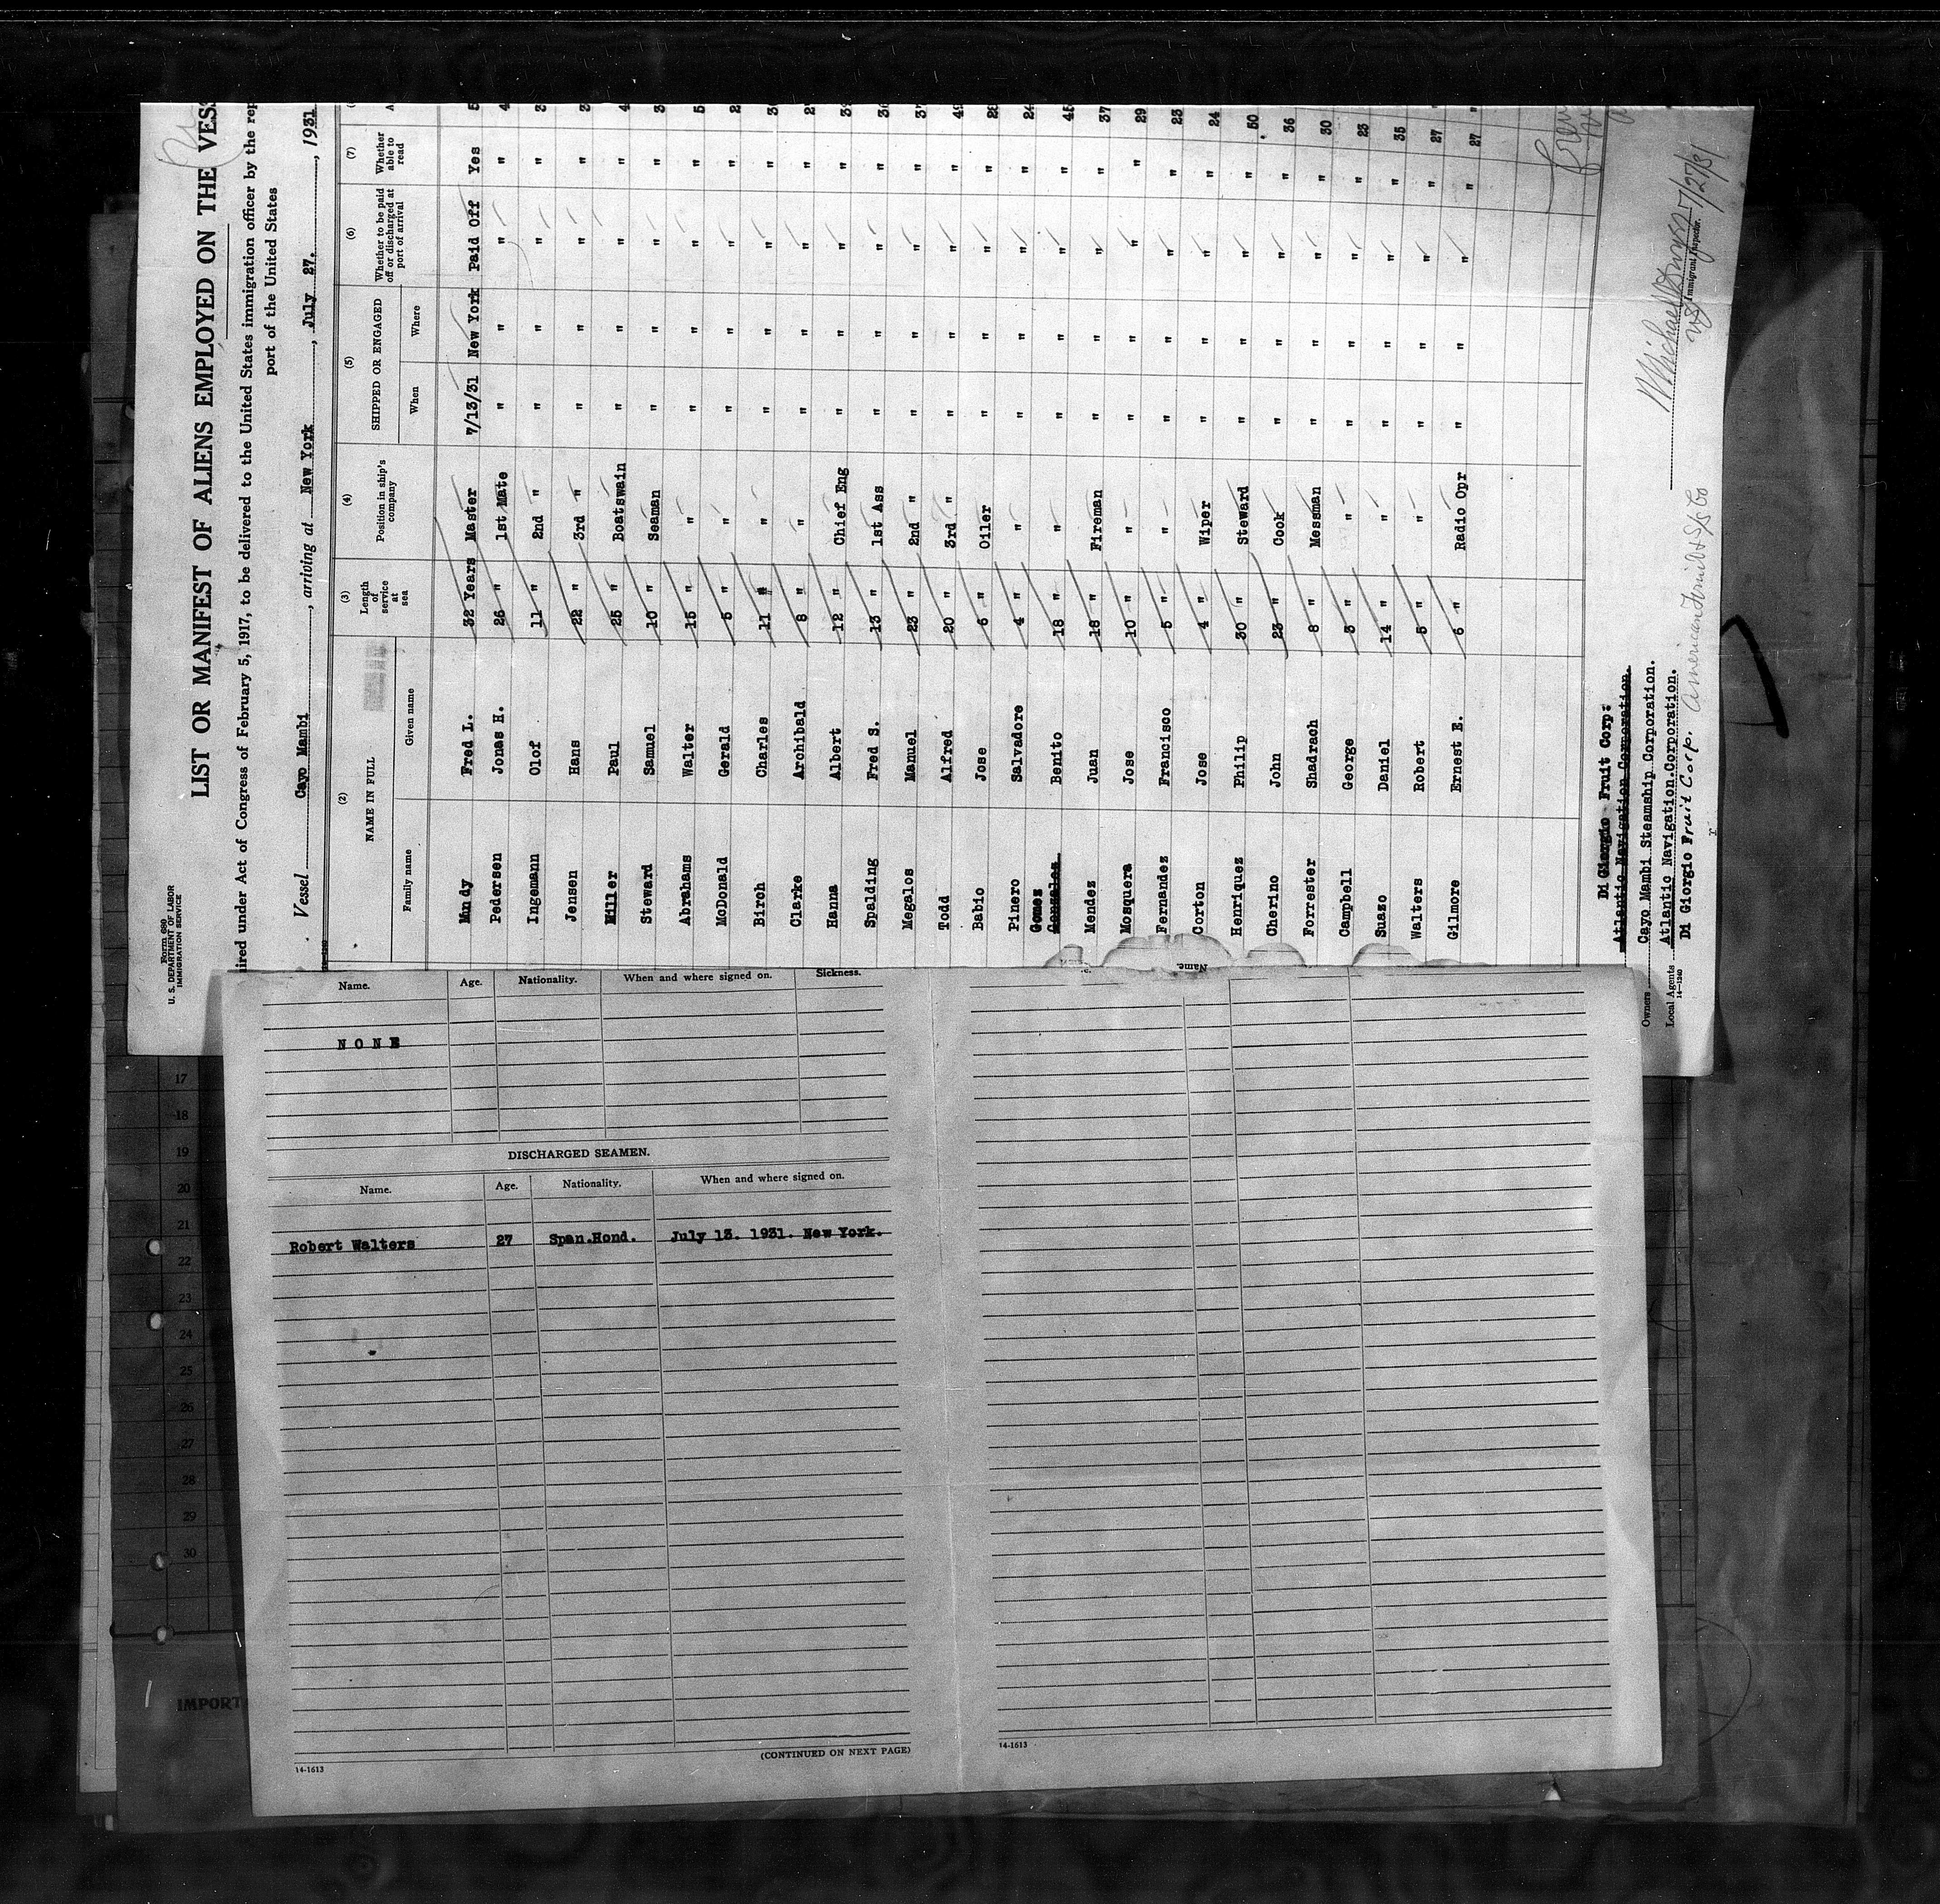 Form 680
U. S. DEPARTMENT OF LABOR
IMMIGRATION SERVICE
LIST OR MANIFEST OF ALIENS EMPLOYED ON THE VES
ired under Act of Congress of February 5, 1917, to be delivered to the United States immigration officer by the rep
port of the United States
Vessel Cayo Mambi, arriving at New York, July 27., 1931
(2) (3) (4) (5) (6) (7)
NAME IN FULL Length of service at sea Position in ship's company SHIPPED OR ENGAGED Whether to be paid off or discharged at port of arrival Whether able to read A
Family name Given name When Where
Mundy Fred L. 32 Years Master 7/13/31 New York Paid Off Yes 5
Pedersen Jonas H. 26 " 1st Mate " " " " 4
Ingemann Olof 11 " 2nd " " " " " 3
Jensen Hans 22 " 3rd " " " " "
Miller Paul 25 " Boatswain " " " " 4
Steward Samuel 10 " Seaman " " " " 3
Abrahams Walter 15 " " " " " " 5
McDonald Gerald 5 " " " " " " 2
Birch Charles 11 " " " " " " 3
Clarke Archibald 8 " " " " " " 2
Hanna Albert 12 " Chief Eng " " " " 3
Spalding Fred S. 13 " 1st Ass " " " " 3
Megalos Manuel 23 " 2nd " " " " " 37
Todd Alfred 20 " 3rd " " " " " 49
Babio Jose 6 " Oiler " " " " 28
Pinero Salvadore 4 " " " " " " 24
Gomez
Gonzalez Benito 18 " " " " " " 45
Mendez Juan 18 " Fireman " " " " 37
Mosquera Jose 10 " " " " " " 29
Fernandez Francisco 5 " " " " " " 23
Corton Jose 4 " Wiper " " " " 24
Henriquez Philip 30 " Steward " " " " 50
Cherino John 23 " Cook " " " " 36
Forrester Shadrach 8 " Messman " " " " 30
Campbell George 3 " " " " " " 23
Suazo Daniel 14 " " " " " " 35
Walters Robert 5 " " " " " " 27
Gilmore Ernest E. 6 " Radio Opr " " " " 27
Di Giorgio Fruit Corp:
Atlantic Navigation Corporation.
Owners Cayo Mambi Steamship Corporation.
Local Agents Atlantic Navigation Corporation.
14-1240
Di Giorgio Fruit Corp. American Fruit & SS Co
Michael 7/27/31
Immigrant Inspector.
Name. Age. Nationality. When and where signed on. Sickness.
NONE
DISCHARGED SEAMEN.
Name. Age. Nationality. When and where signed on.
Robert Walters 27 Span.Hond. July 13. 1931. New York.
(CONTINUED ON NEXT PAGE)
14-1613
Name.
14-1613
17
18
19
20
21
22
23
24
25
26
27
28
29
30
IMPORT